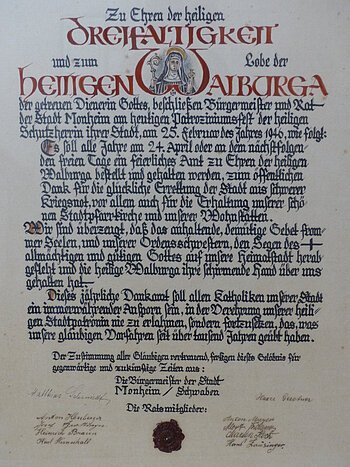 Zu Ehren der heiligen
DREIFALTIGKEIT
und zum Lobe der
HEILIGEN WALBURGA
der getreuen Dienerin Gottes, beschließen Bürgermeister und Rat
der Stadt Monheim am heutigen Patroziniumsfest der heiligen
Schutzherrin ihrer Stadt, am 25. Februar des Jahres 1946, wie folgt:
Es soll alle Jahre am 24. April oder an dem nächstfolgen
den freien Tage ein feierliches Amt zu Ehren der heiligen
Walburga bestellt und gehalten werden, zum öffentlichen
Dank für die glückliche Errettung der Stadt aus schwerer
Kriegsnot, vor allem auch für die Erhaltung unserer schö
nen Stadtpfarrkirche und unserer Wohnstätten.
Wir sind überzeugt, daß das anhaltende, demütige Gebet from
mer Seelen, und unserer Ordensschwestern, den Segen des
allmächtigen und gütigen Gottes auf unsere Heimatstadt herab
gefleht und die heilige Walburga ihre schirmende Hand über uns
gehalten hat.
Dieses jährliche Dankamt soll allen Katholiken unserer Stadt
ein immerwährender Ansporn sein, in der Verehrung unserer heili-
gen Stadtpatronin nie zu erlahmen, sondern fortzusetzen, das, was
unsere gläubigen Vorfahren seit über tausend Jahren geübt haben.
Der Zustimmung aller Gläubigen vertrauend, fertigen dieses Gelöbnis für
gegenwärtige und zukünftige Zeiten aus:
Die Bürgermeister der Stadt
Monheim / Schwaben
Die Ratsmitglieder:
Anton
Heinrich
Karl
Anton
Hans